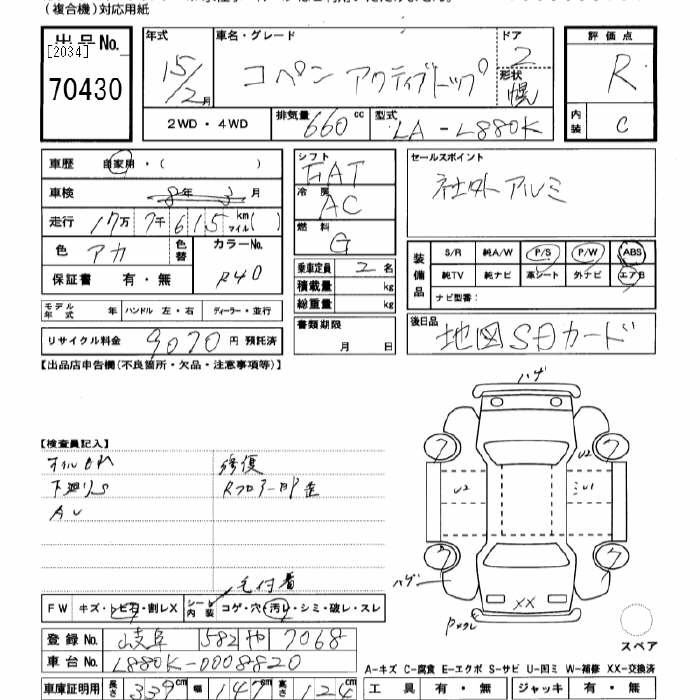 (複合機)対応用紙
出品No. 年式 車名・グレード ドア 評価点
[2034] 15/2月 コペン アクティブトップ 2 R
70430 形状 幌
2WD・4WD 排気量 660 cc 型式 LA-L880K 内装 C
車歴 自家用・( ) シフト FAT セールスポイント
車検 8年 3月 冷房 AC 社外アルミ
走行 17万7千615 km マイル( ) 燃料 G
色 アカ 色替 カラーNo. R40
保証書 有・無
乗車定員 2名 装備品 S/R 純A/W P/S P/W ABS
積載量 kg 純TV 純ナビ 革シート 外ナビ エアB
総重量 kg ナビ型番:
モデル年式 年 ハンドル 左・右 ディーラー・並行 書類期限 月 日
リサイクル料金 9070円 預託済 後日品 地図SDカード
【出品店申告欄(不良箇所・欠品・注意事項等)】
ハゲ
【検査員記入】
修復
下廻りS Rフロアー
AU
U2 U2
ハゲ XX
毛付着
FW キズ・トビ石・割レX シート内装 コゲ・穴・汚レ・シミ・破レ・スレ
登録No. 岐阜 582 や 7068
車台No. L880K-0008820 スペア
A-キズ C-腐食 E-エクボ S-サビ U-凹ミ W-補修 XX-交換済
車庫証明用 長さ 339cm 幅 147cm 高さ 124cm 工具 有・無 ジャッキ 有・無